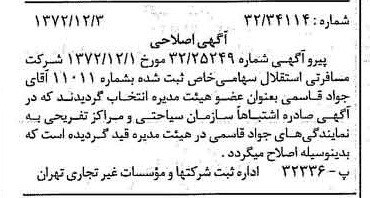 شماره: ۳۲/۳۴۱۱۴ ۱۳۷۲/۱۲/۳
آگهی اصلاحی
پیرو آگهی شماره ۳۲/۲۵۲۴۹ مورخ ۱۳۷۲/۱۲/۱ شرکت
مسافرتی استقلال سهامی‌خاص ثبت شده بشماره ۱۱۰۱۱ آقای
جواد قاسمی بعنوان عضو هیئت مدیره انتخاب گردیدند که در
آگهی صادره اشتباهاً سازمان سیاحتی و مراکز تفریحی به
نمایندگی‌های جواد قاسمی در هیئت مدیره قید گردیده است که
بدینوسیله اصلاح میگردد.
پ - ۳۲۳۳۶ اداره ثبت شرکتها و مؤسسات غیر تجاری تهران